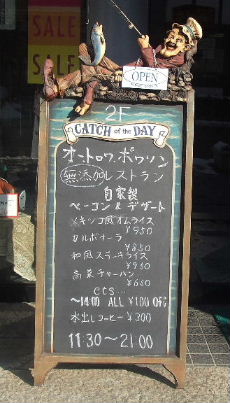 SALE
SALE
OPEN
2F
CATCH of the DAY
オートロワ.ポワソン
無添加レストラン
自家製
ベーコン & デザート
メキシコ風オムライス
¥950
カルボナーラ
¥850
和風ステーキライス
¥950
高菜チャーハン
¥680
etc...
〜14:00 ALL ¥100 OFF
水出しコーヒー ¥300
11:30〜21:00